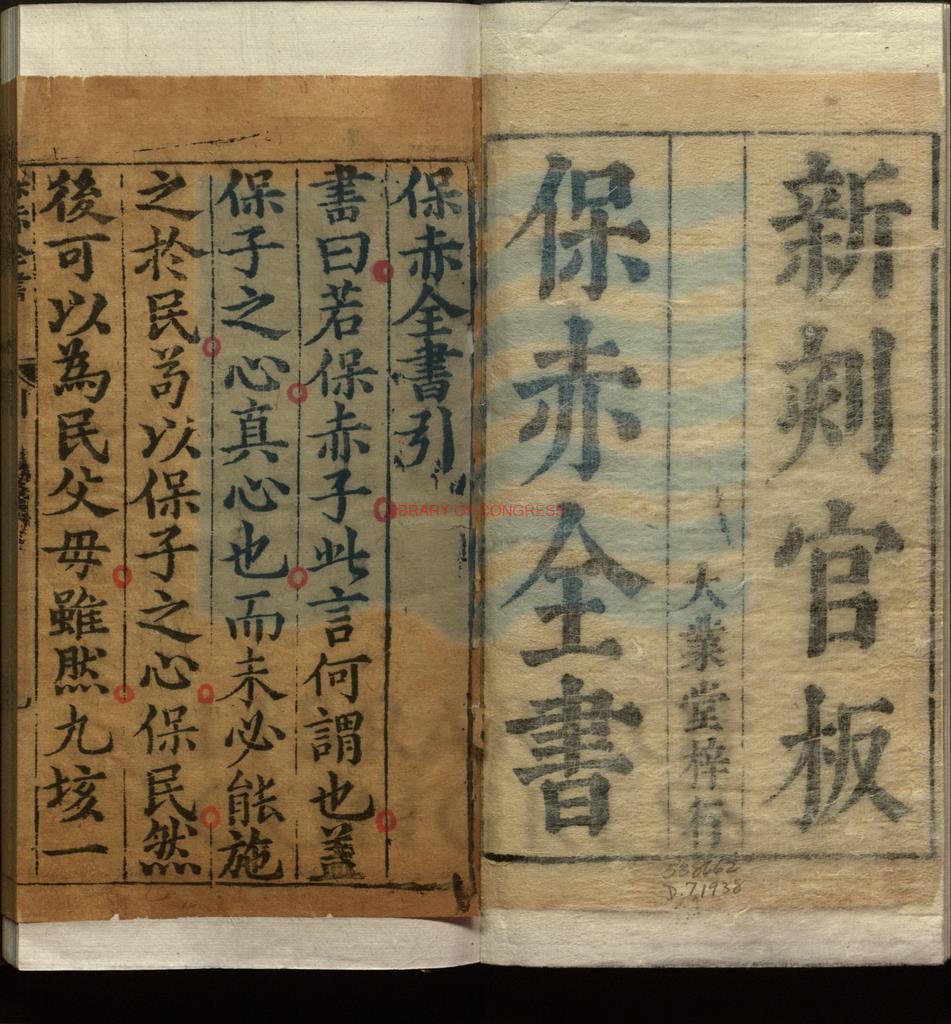 新刻官板
大業堂梓行
保赤全書
保赤全書引
書曰若保赤子此言何謂也蓋
保子之心真心也而未必能施
之於民苟以保子之心保民然
後可以為民父毋雖然九垓一
LIBRARY OF CONGRESS
538662
D.7,1938